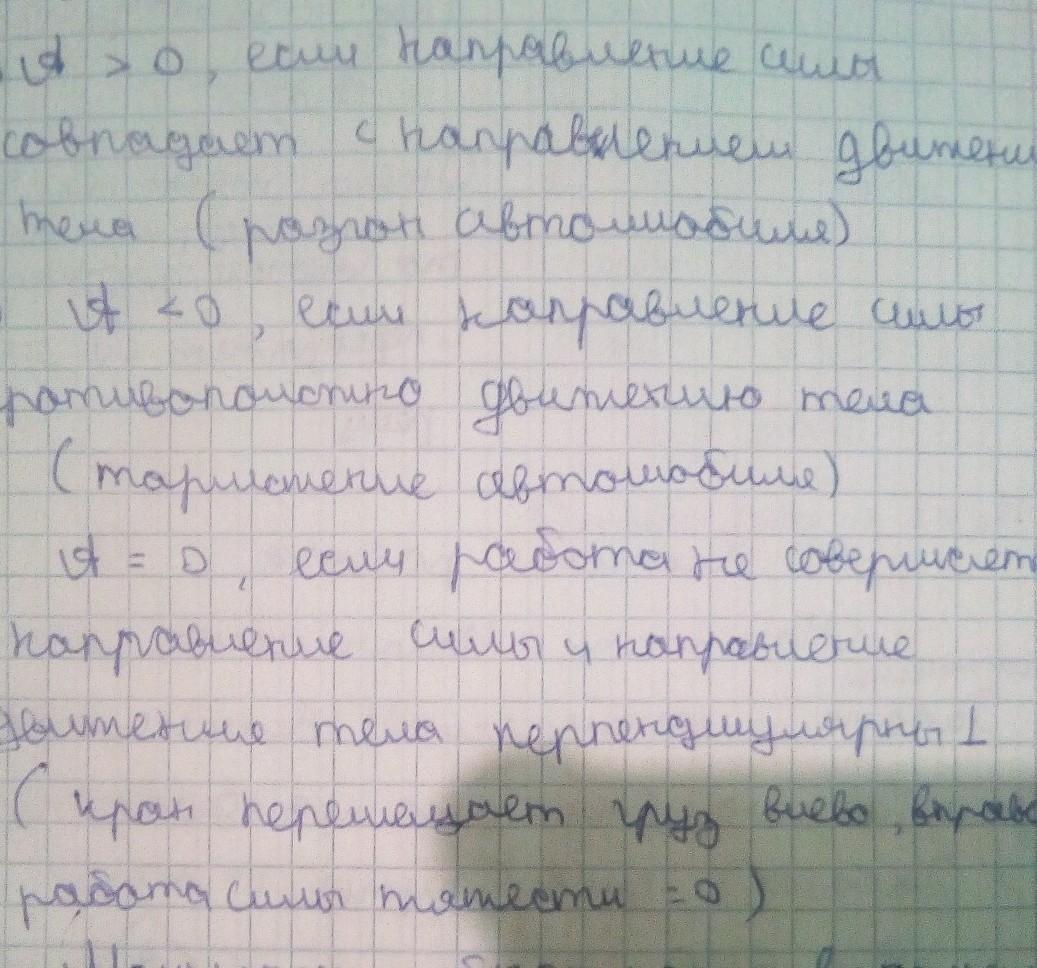 A > 0, если направление силы
совпадает с направлением движени
тела (разгон автомобиля)
A < 0, если направление силы
ративополостно движению тела
(тармошение автомобиля)
A = 0, если работа не совершает
направление силы и направление
движение тела перпендикулярны ⊥
(кран перемещает груз влево, вправо
работа силы тяжести = 0)